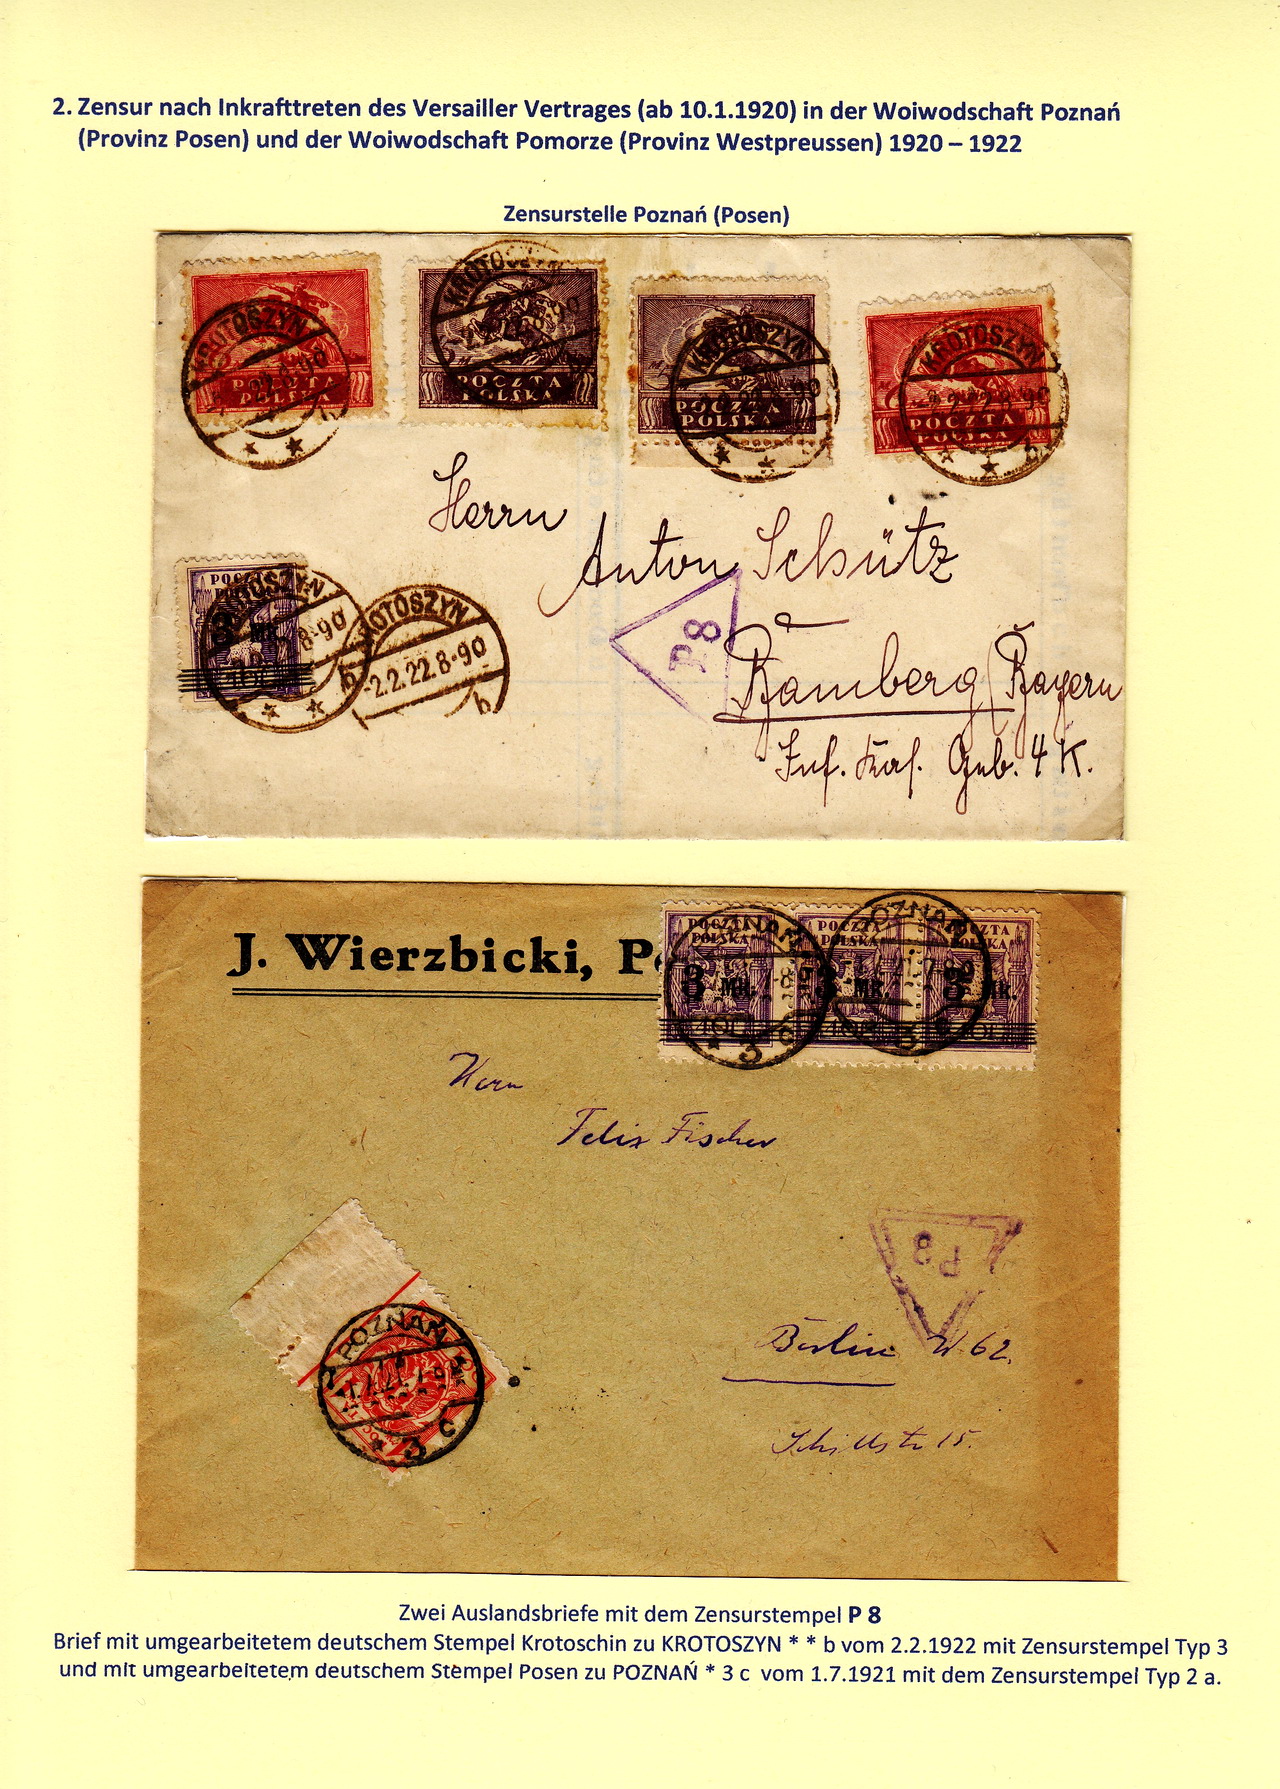 2. Zensur nach Inkrafttreten des Versailler Vertrages (ab 10.1.1920) in der Woiwodschaft Poznań
(Provinz Posen) und der Woiwodschaft Pomorze (Provinz Westpreussen) 1920 – 1922
Zensurstelle Poznań (Posen)
KROTOSZYN
POCZTA
POLSKA
KROTOSZYN
2.2.22.8-9
POCZTA
POLSKA
KROTOSZYN
POCZTA
POLSKA
KROTOSZYN
POCZTA
POLSKA
Herrn
Anton Schütz
P 8
Bamberg / Bayern
Inf. Kas. Geb. 4 K.
POCZTA
3 MK.
KROTOSZYN
-2.2.22.8-9
b
J. Wierzbicki,
POCZTA
POLSKA
3 MK.
POCZTA
POLSKA
3 MK.
POCZTA
3 MK.
POZNAŃ
* 3 c
Herrn
Felix Fischer
P 8
Berlin W. 62.
Schillstr 15.
POZNAŃ
* 3 c
Zwei Auslandsbriefe mit dem Zensurstempel P 8
Brief mit umgearbeitetem deutschem Stempel Krotoschin zu KROTOSZYN * * b vom 2.2.1922 mit Zensurstempel Typ 3
und mit umgearbeitetem deutschem Stempel Posen zu POZNAŃ * 3 c vom 1.7.1921 mit dem Zensurstempel Typ 2 a.